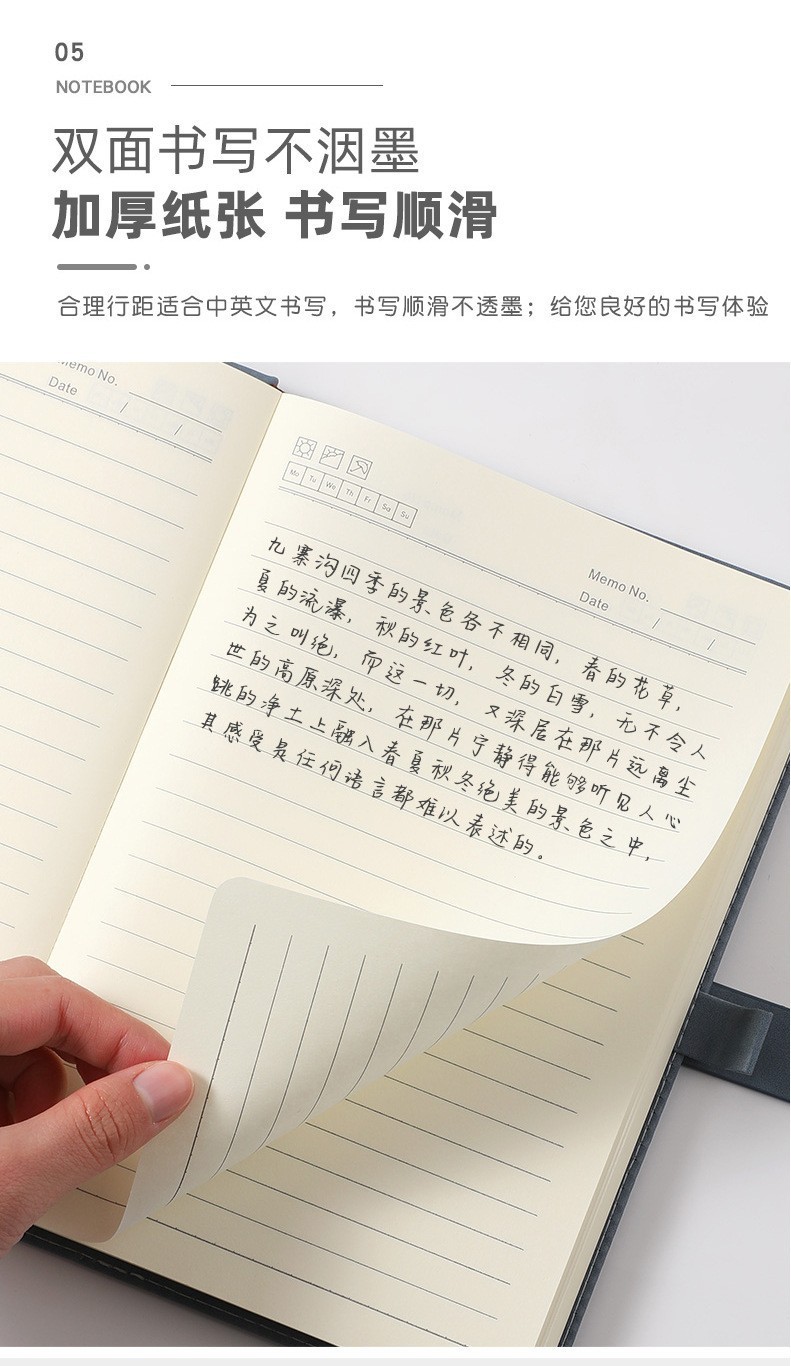 05
NOTEBOOK
双面书写不洇墨
加厚纸张 书写顺滑
合理行距适合中英文书写，书写顺滑不透墨；给您良好的书写体验
Memo No.
Date / /
Mo Tu We Th Fr Sa Su
Memo No.
Date / /
九寨沟四季的景色各不相同，春的花草，
夏的流瀑，秋的红叶，冬的白雪，无不令人
为之叫绝，而这一切，又深居在那片远离尘
世的高原深处，在那片宁静得能够听见人心
跳的净土上融入春夏秋冬绝美的景色之中，
其感受是任何语言都难以表述的。